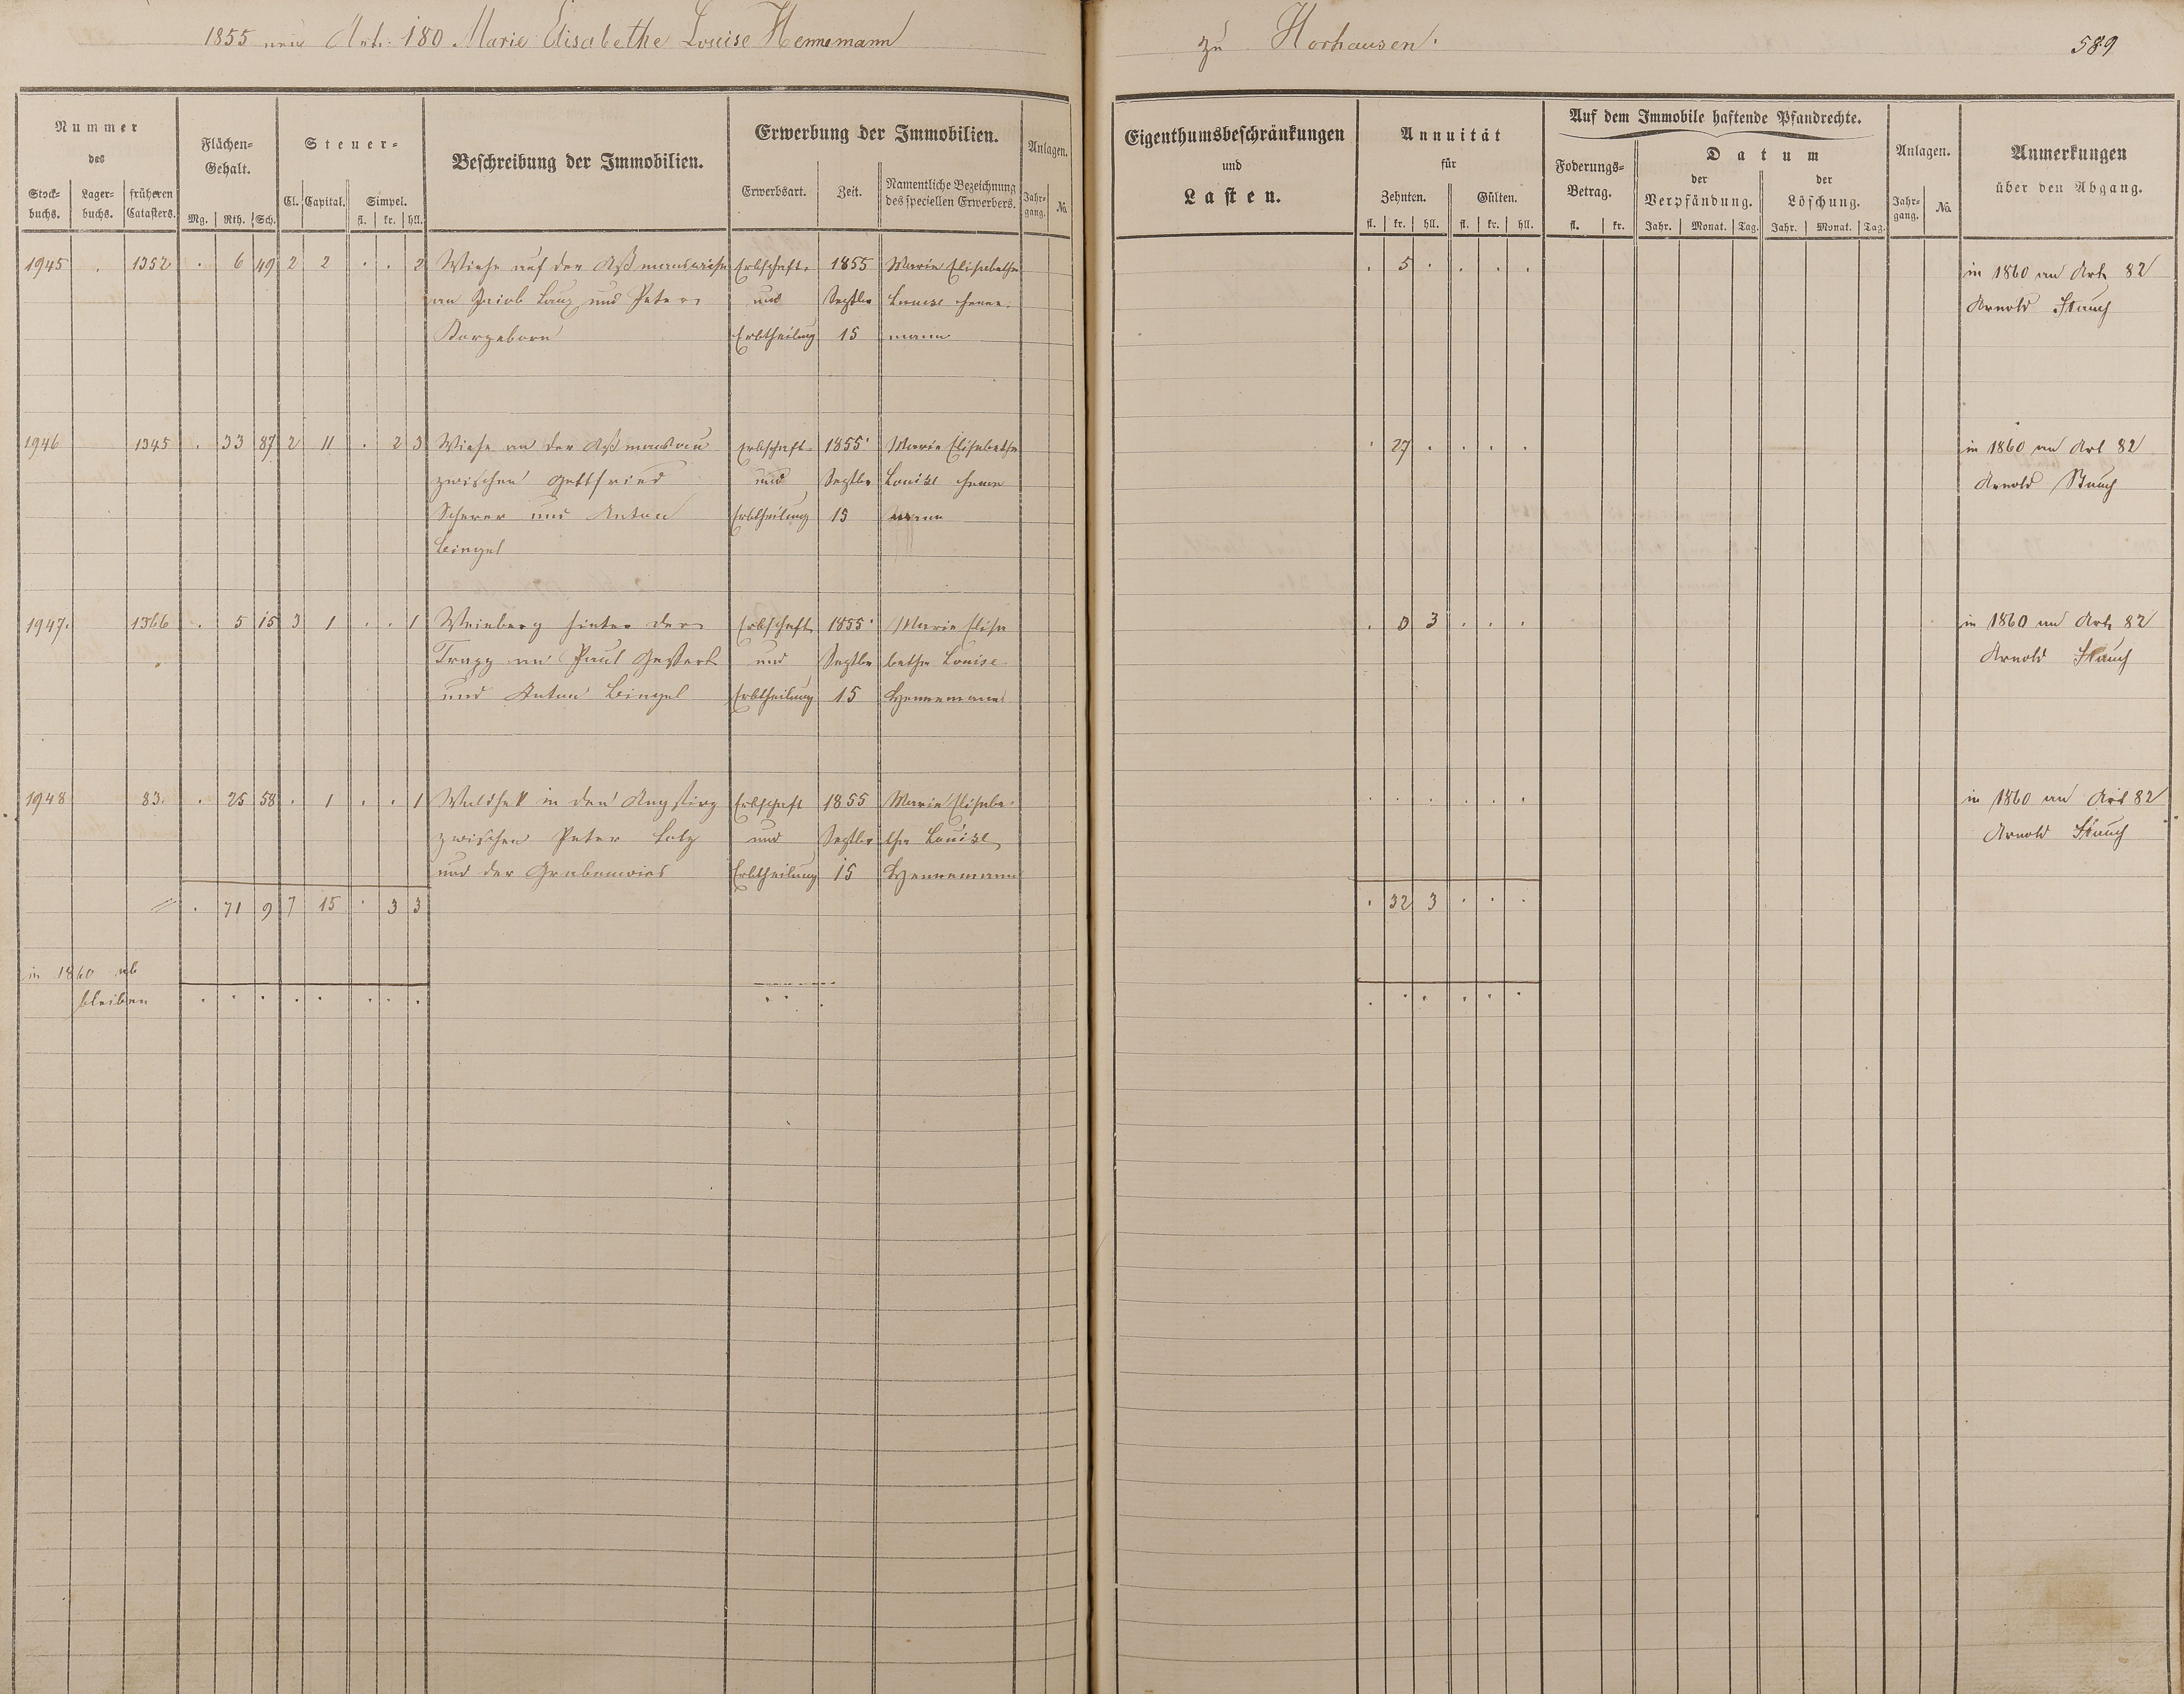 1855 neu Art. 180 Marie Elisabethe Louise Hennemann
zu Horhausen.
589
Nummer
des
Stock-
buchs.
Lager-
buchs.
früheren
Catasters.
Flächen-
Gehalt.
Mg. Rth. Sch.
Steuer-
Cl. Capital.
Simpel.
fl. kr. hll.
Beschreibung der Immobilien.
Erwerbung der Immobilien.
Erwerbsart.
Zeit.
Namentliche Bezeichnung
des speciellen Erwerbers.
Anlagen.
Jahr-
gang.
No.
Eigenthumsbeschränkungen
und
Lasten.
Annuität
für
Zehnten. Gülten.
fl. kr. hll. fl. kr. hll.
Auf dem Immobile haftende Pfandrechte.
Foderungs-
Betrag.
fl. kr.
Datum
der
Verpfändung.
Jahr. Monat. Tag.
der
Löschung.
Jahr. Monat. Tag.
Anlagen.
Jahr-
gang.
No.
Anmerkungen
über den Abgang.
1945 . 1352 . 6 49 2 2 . . 2 Wiese auf der Erbschaft 1855 Marie Elisabethe . 5 . . . . in 1860 an Art 82
an Jacob und Peter und Septbr Louise Henne- Arnold Stauch
Erbtheilung 15 mann
1946 1345 . 33 87 2 11 . 2 3 Wiese an der Erbschaft 1855 Marie Elisabethe . 27 . . . . in 1860 an Art 82
zwischen Gottfried und Septbr Louise Henne Arnold Stauch
Scherer und Anton Erbtheilung 15 mann
Bingel
1947. 1366 . 5 15 3 1 . . 1 Weinberg hinter der Erbschaft 1855 Marie Elisa . 0 3 . . . in 1860 an Art 82
Trapp an Paul und Septbr bethe Louise Arnold Stauch
und Anton Bingel Erbtheilung 15 Hennemann
1948 83. . 25 58 . 1 . . 1 in den Erbschaft 1855 Marie Elisabe- . . . . . . in 1860 an Art 82
zwischen Peter Lotz und Septbr the Louise Arnold Stauch
und der Erbtheilung 15 Hennemann
. 71 9 7 15 . 3 3 . 32 3 . . .
in 1860 ab
bleiben . . . . . . . . . . . . . .